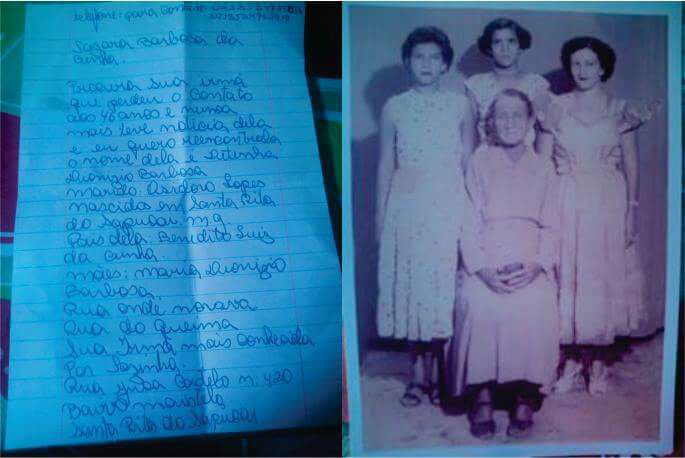 telefone: para contato
Barbosa da
Cunha.
Procura sua irmã
que perdeu o contato
aos 46 anos e nunca
mais teve noticia dela
e eu quero reencontrala
o nome dela e
Dionizio Barbosa
marido: Lopes
nascidas em Santa Rita
do Sapucai. m.g.
Pais dela: Benedito Luiz
da cunha.
mães: maria Dionizio
Barbosa.
Rua onde morava
Rua do queima
Sua Irmã mais conhecida
Por
Rua n: 420
Bairro
Santa Rita do Sapucai